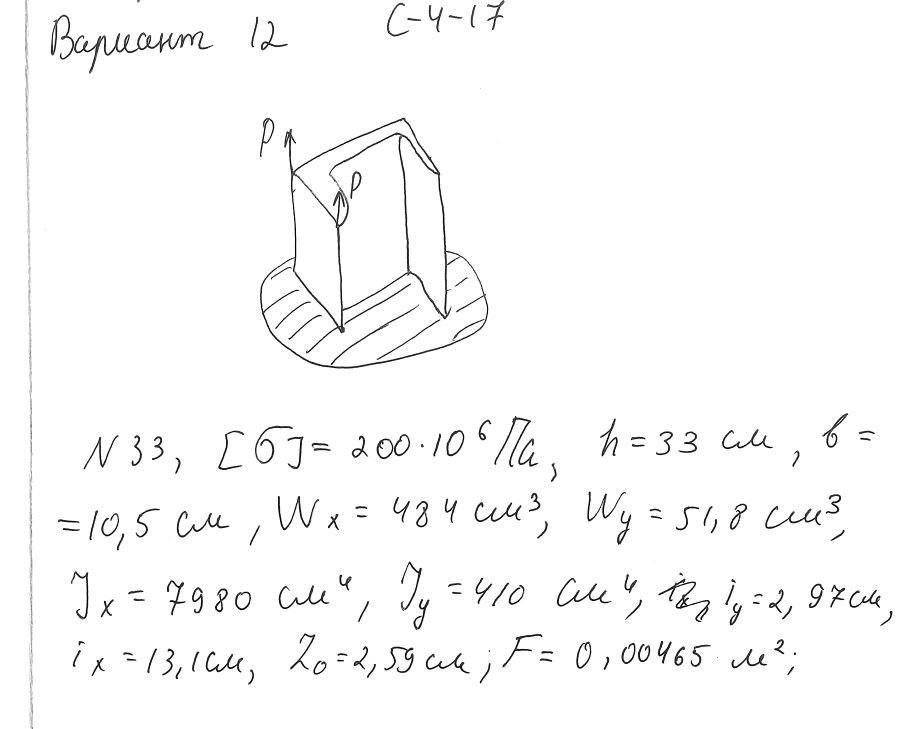 Вариант 12 С-4-17
P
P
N 33, [б]= 200·10⁶ Па, h = 33 см, b =
= 10,5 см, Wx = 484 см³, Wy = 51,8 см³,
Jx = 7980 см⁴, Jy = 410 см⁴, iy = 2,97см,
ix = 13,1см, Z₀ = 2,59 см; F = 0,00465 м²;